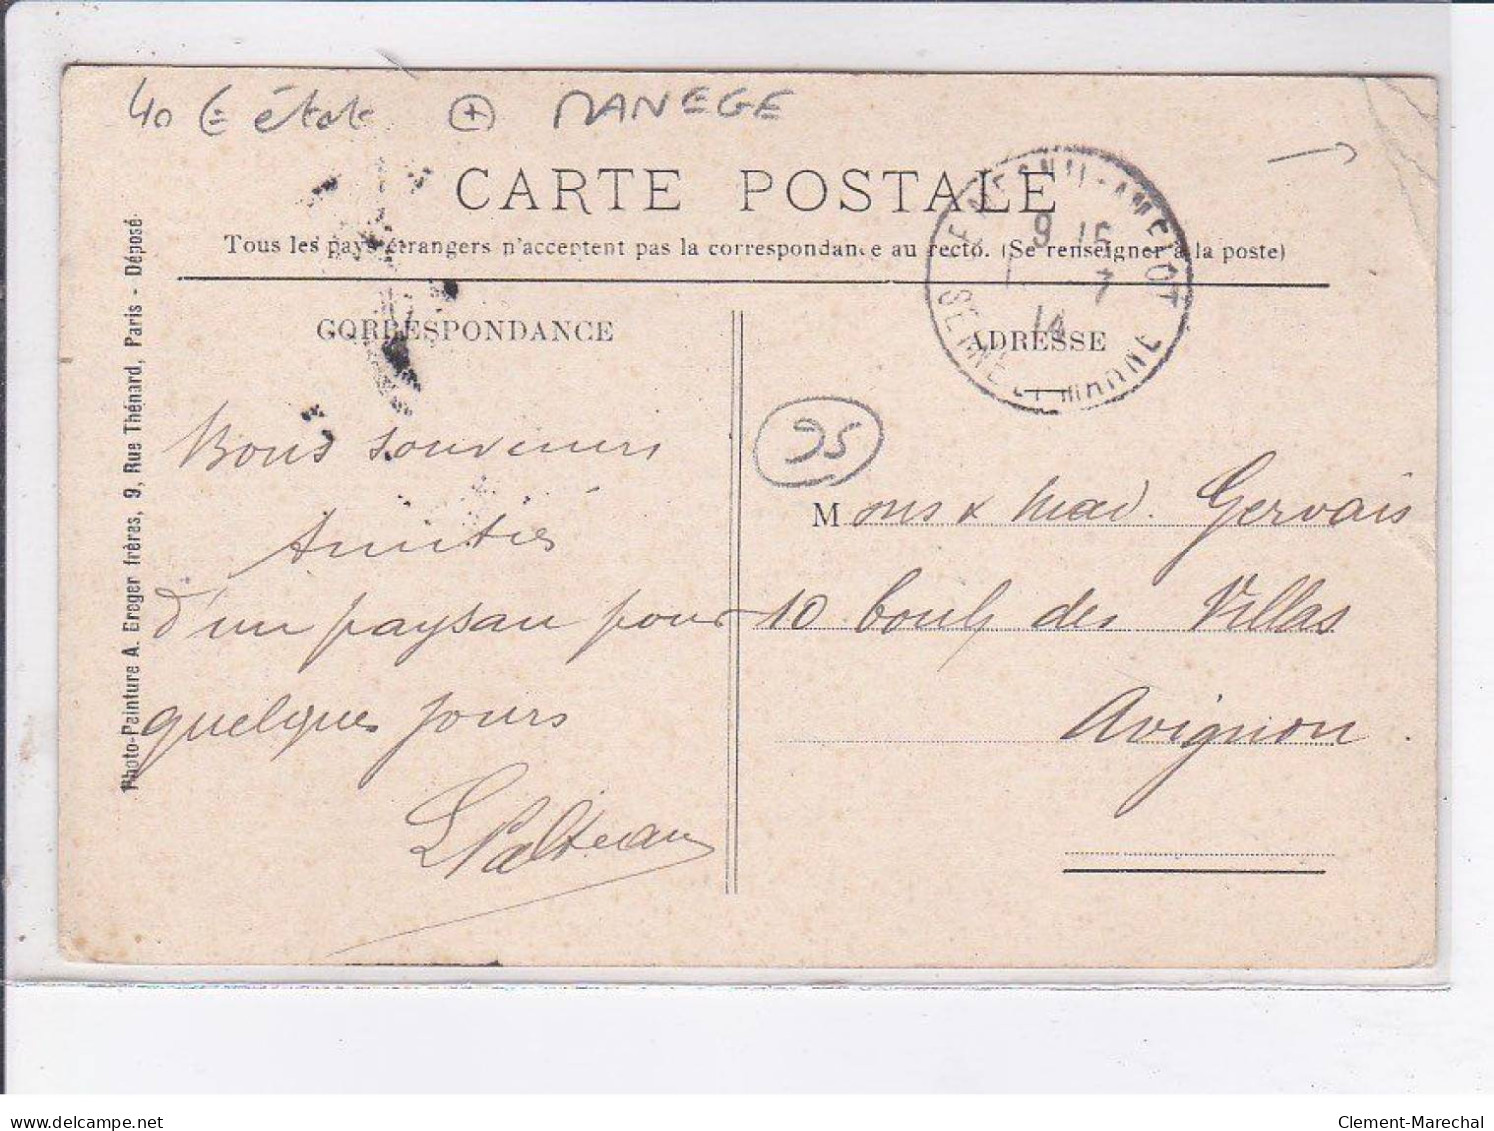 40 € état + MANEGE
CARTE POSTALE
Tous les pays étrangers n'acceptent pas la correspondance au recto. (Se renseigner à la poste)
LE MESNIL-AMELOT
9 15
1 7
14
SEINE ET MARNE
CORRESPONDANCE
ADRESSE
95
Bons souvenirs
Amitiés
d'un paysan pour
quelques jours
Mons & Mad. Gervais
10 boul des Villas
Avignon.
Photo-Peinture A. Breger frères, 9, Rue Thénard, Paris - Déposé
delcampe.net
Clement-Marechal